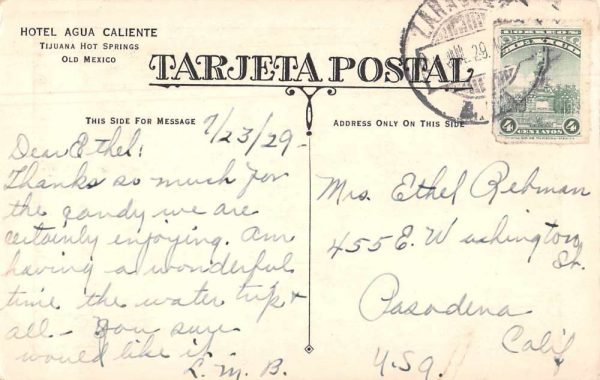 HOTEL AGUA CALIENTE
TIJUANA HOT SPRINGS
OLD MEXICO
TARJETA POSTAL
THIS SIDE FOR MESSAGE
ADDRESS ONLY ON THIS SIDE
7/23/29-
Dear Ethel:
Thanks so much for
the candy we are
certainly enjoying. Am
having a wonderful
time the water trip &
all - You sure
would like it
L. M. B.
Mrs. Ethel Rehman
455 E. Washington
St.
Pasadena
Calif
U.S.A.
29
4¢
4¢
CENTAVOS